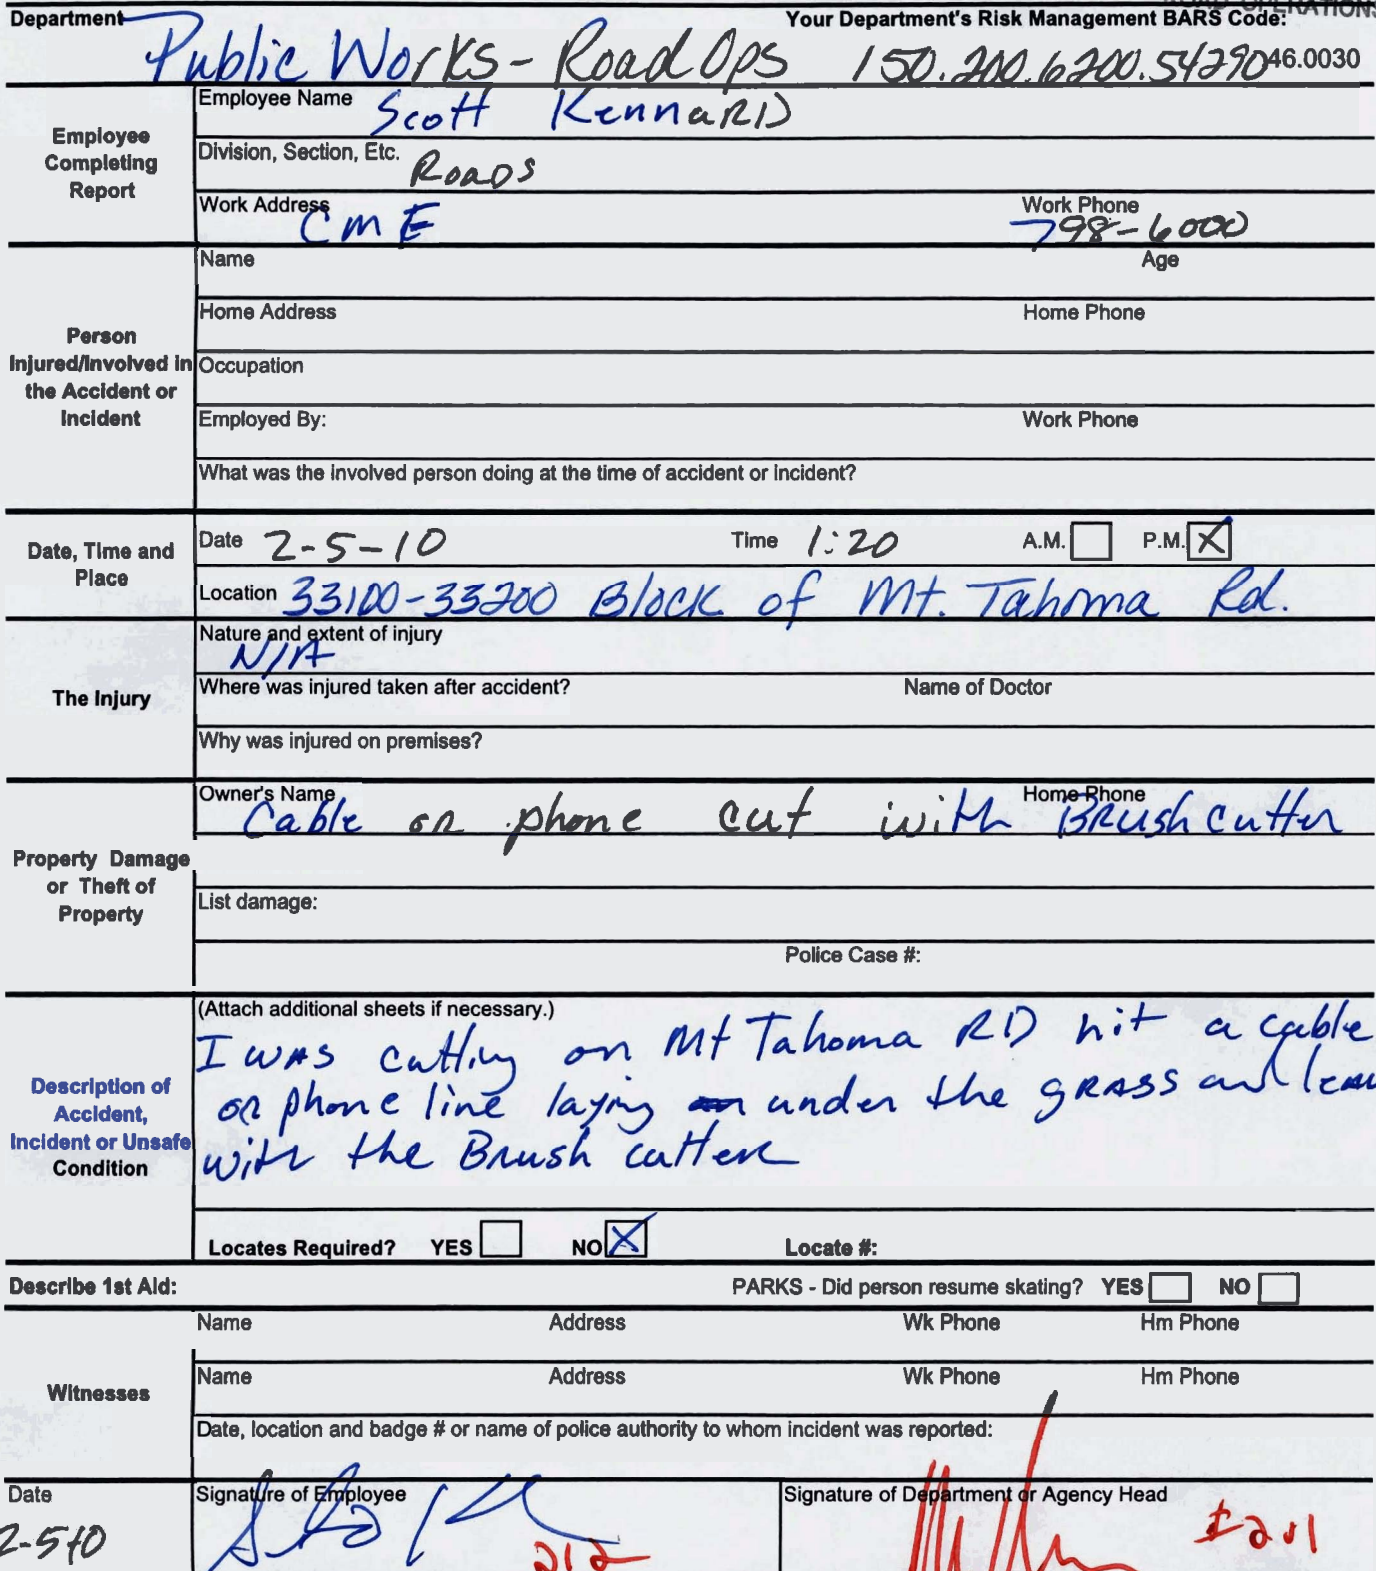 ROAD OPERATIONS
Department Your Department's Risk Management BARS Code:
Public Works - Road Ops 150.200.6200.54290 46.0030
Employee Completing Report
Employee Name Scott Kennard
Division, Section, Etc. Roads
Work Address CME Work Phone 798-6000
Person Injured/Involved in the Accident or Incident
Name Age
Home Address Home Phone
Occupation
Employed By: Work Phone
What was the involved person doing at the time of accident or incident?
Date, Time and Place
Date 2-5-10 Time 1:20 A.M. P.M. X
Location 33100-33200 Block of Mt. Tahoma Rd.
The Injury
Nature and extent of injury
N/A
Where was injured taken after accident? Name of Doctor
Why was injured on premises?
Property Damage or Theft of Property
Owner's Name Home Phone
Cable or phone cut with Brush cutter
List damage:
Police Case #:
Description of Accident, Incident or Unsafe Condition
(Attach additional sheets if necessary.)
I was cutting on Mt Tahoma RD hit a cable
or phone line laying under the grass and
with the Brush cutter
Locates Required? YES NO X Locate #:
Describe 1st Aid: PARKS - Did person resume skating? YES NO
Witnesses
Name Address Wk Phone Hm Phone
Name Address Wk Phone Hm Phone
Date, location and badge # or name of police authority to whom incident was reported:
Date Signature of Employee Signature of Department or Agency Head
2-5-10